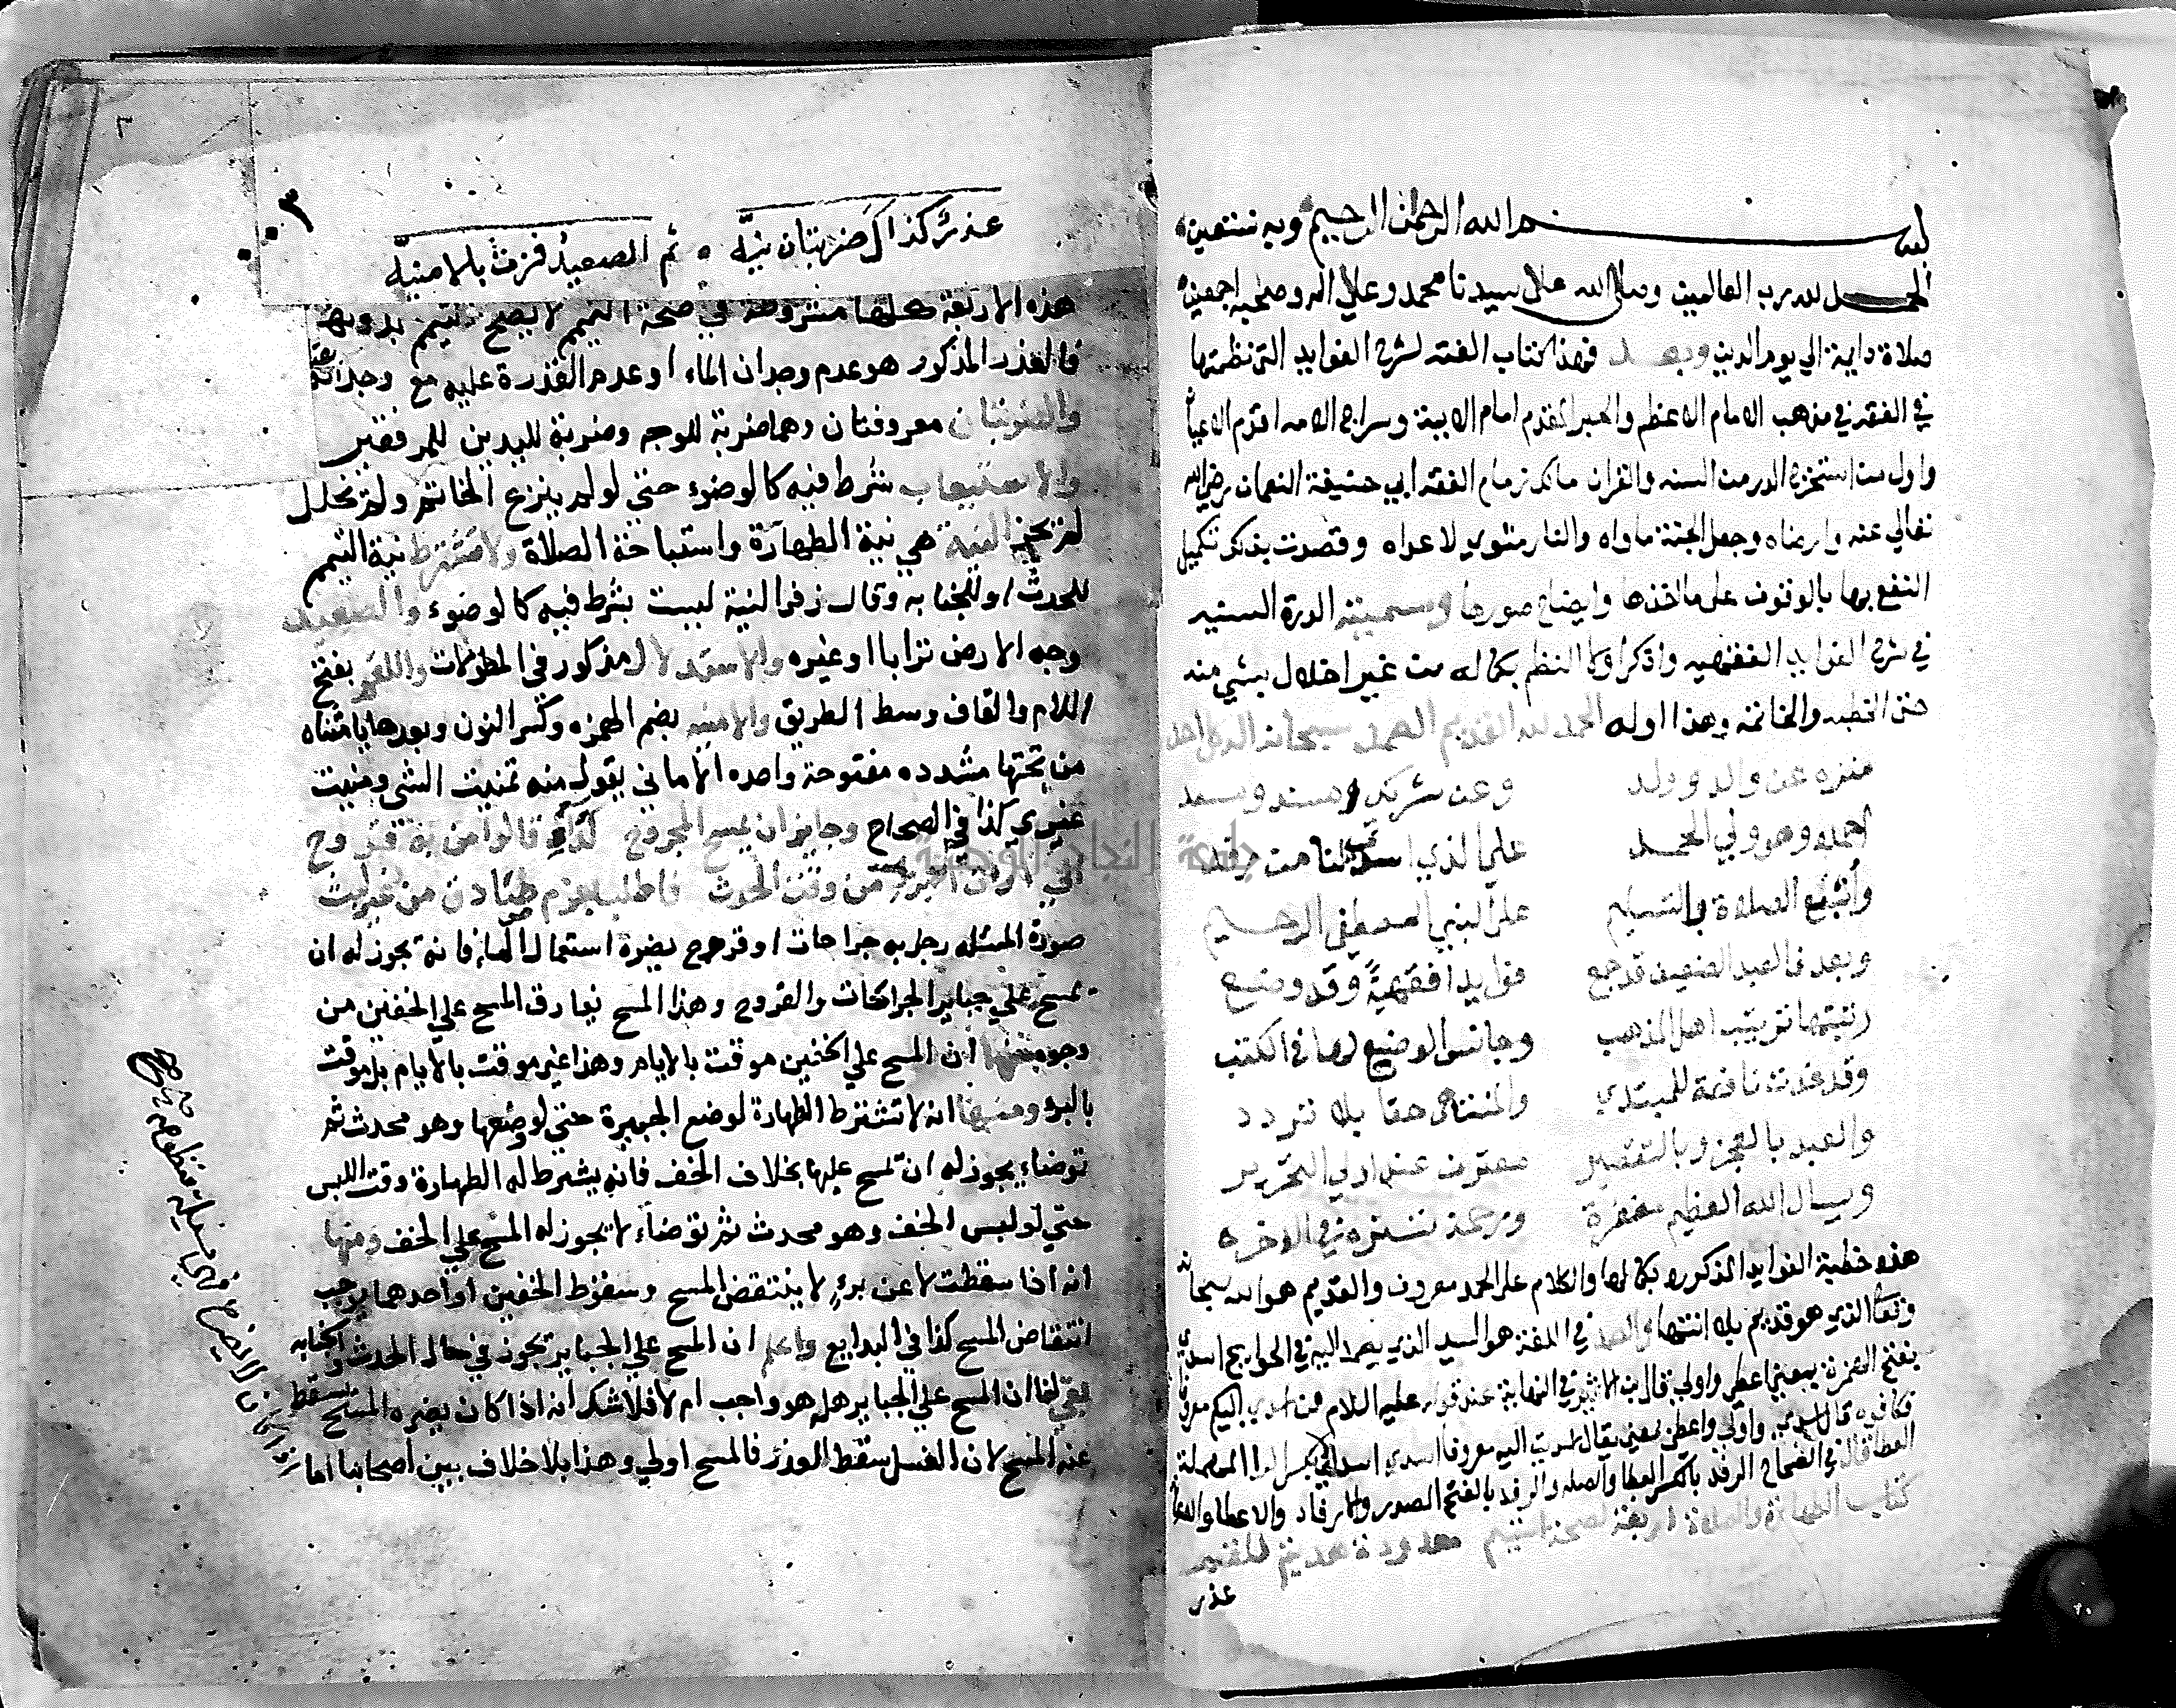 بسم الله الرحمن الرحيم وبه نستعين
الحمد لله رب العالمين وصلى الله على سيدنا محمد وعلى اله وصحبه اجمعين
صلاة دايمة الي يوم الدين وبعد فهذا كتاب الفته لشرح الفوايد التي نظمتها
في الفقه في مذهب الامام الاعظم والحبر المقدم امام الايمة وسراج الامه اقدم
واول من استخرج الدر من السنه والقران مالك زمام الفقه ابي حنيفة النعمان رضي الله
تعالي عنه وارضاه وجعل الجنة ماواه والنار مثوي لاعداه وقصدت بذلك تكميل
النفع بها بالوقوف على ماخذها وايضاح صورها وسميته الدرة السنيه
في شرح الفوايد الفقهيه واذكر اولا النظم بكماله من غير اخلال بشي منه
حتى الخطبه والخاتمة وهذا اوله الحمد لله القديم الصمد سبحانه
منزه عن والد وولد وعن شريك
احمده وهو ولي الحمد على الذي اسدى لنا من رفد
وأتبع الصلاة بالتسليم على النبي المصطفى الرحيم
وبعد فالعبد الضعيف قد جمع فوايدا فقهية وقد وضع
رتبتها ترتيب اهل المذهب وجانس الوضع لها في الكتب
وقد غدت نافعة للمبتدي والمنتهى حقا بلا تردد
والعبد بالعجز وبالتقصير معترف عند اولي التحرير
ويسال الله العظيم مغفرة ورحمة تستره في الاخره
هذه خطبة الفوايد المذكوره بكمالها والكلام على الحمد معروف والقديم هو الله سبحانه
وتعالى الذي هو قديم بلا انتها والصمد في اللغة هو السيد الذي يصمد اليه في الحوايج اسدى
بفتح الهمزة بمعنى اعطى واولي قال بن الاثير في النهاية عند قوله عليه السلام من اسدي اليكم معروفا
فكافوه قال اسدي واولى واعطى بمعنى يقال اسديت اليه معروفا اسدي
العطا قال في الصحاح الرفد بالكسر العطا والصله والرفد بالفتح المصدر والارفاد والاعطا
كتاب الطهارة والصلاة اربعة لصحة التيمم معدودة
عذر
عذر كذاك ضربتان نيّه ثم الصعيد فزت بالامنيّه
هذه الاربعة كلها مشروطة في صحة التيمم لا يصح التيمم بدونها
فالعذر المذكور هو عدم وجدان الماء او عدم القدرة عليه مع وجدانه
والضربتان معروفتان وهما ضربة للوجه وضربة لليدين للمرفقين
والاستيعاب شرط فيه كالوضوء حتي لو لم ينزع الخاتم ولم يخلل
لم يجز والنية هي نية الطهارة واستباحة الصلاة ولا تشترط نية التيمم
للحدث او للجنابه وقال زفر النية ليست بشرط فيه كالوضوء والصعيد
وجه الارض ترابا او غيره والاستدلال مذكور في المطولات واللقم بفتح
اللام والقاف وسط الطريق والامنيه بضم الهمزه وكسر النون وبعدها يا مثناه
من تحتها مشدده مفتوحة واحده الاماني يقول منه تمنيت الشي ومنيت
غيري كذا في الصحاح وجايز ان يمسح المجروح كذا قالوا من به قروح
صورة المسئله رجل به جراحات او قروح يضره استعمال الماء فانه يجوز له ان
يمسح علي جباير الجراحات والقروح وهذا المسح يفارق المسح علي الخفين من
وجوه منها ان المسح علي الخفين موقت بالايام وهذا غير موقت بالايام بل موقت
بالبرء ومنها انه لا تشترط الطهارة لوضع الجبيرة حتي لو وضعها وهو محدث ثم
توضاء يجوز له ان يمسح عليها بخلاف الخف فانه يشترط له الطهارة وقت اللبس
حتي لو لبس الخف وهو محدث ثم توضاء لا يجوز له المسح علي الخف ومنها
انه اذا سقطت لا عن برء لا ينتقض المسح وسقوط الخفين او احدهما يوجب
انتقاض المسح كذا في البدايع واعلم ان المسح علي الجباير يجوز في حال الحدث والجنابه
بقي لنا ان المسح علي الجباير هل هو واجب ام لا فلا شك انه اذا كان يضره المسح سقط
عنه المسح لان الغسل سقط للعذر فالمسح اولي وهذا بلا خلاف بين اصحابنا اما